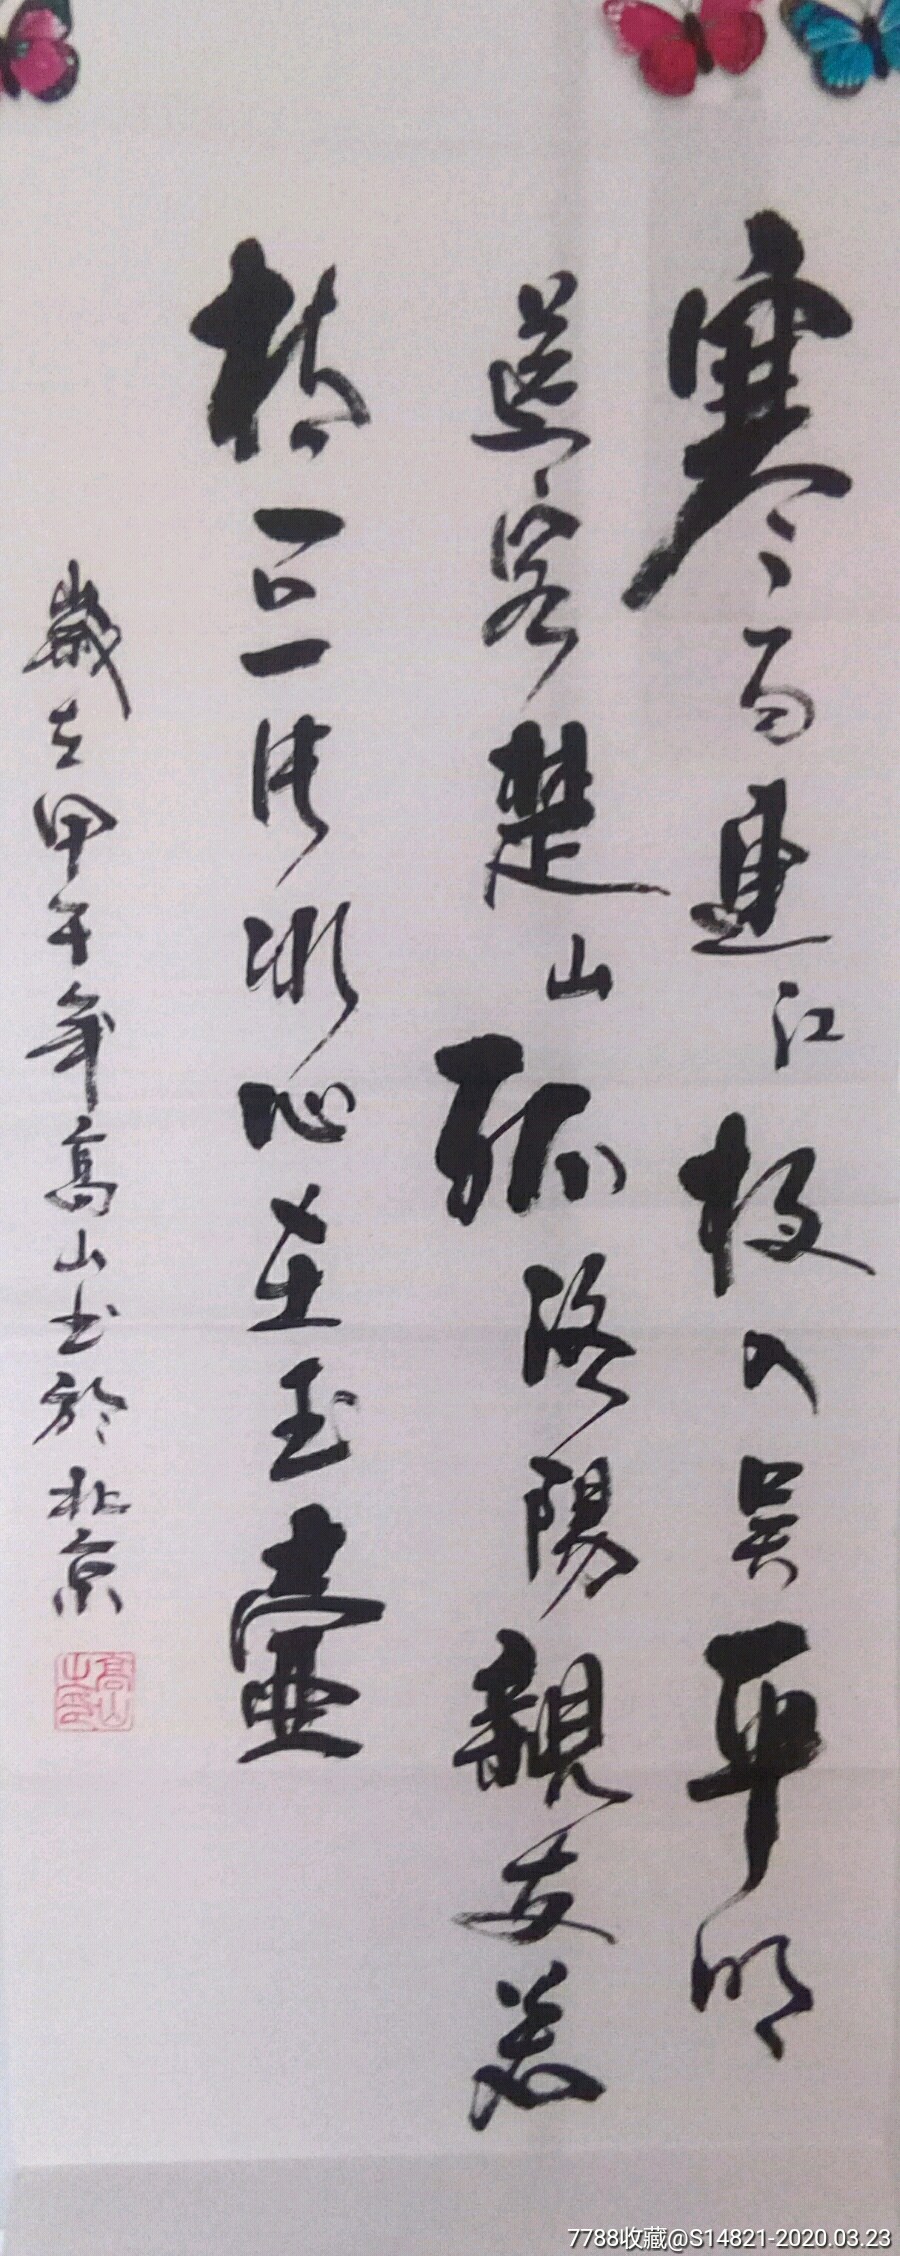 寒雨連江夜入吴平明
送客楚山孤洛陽親友若
相問一片冰心在玉壺
歲在甲午年高山书於北京
高山之印
7788收藏@S14821-2020.03.23